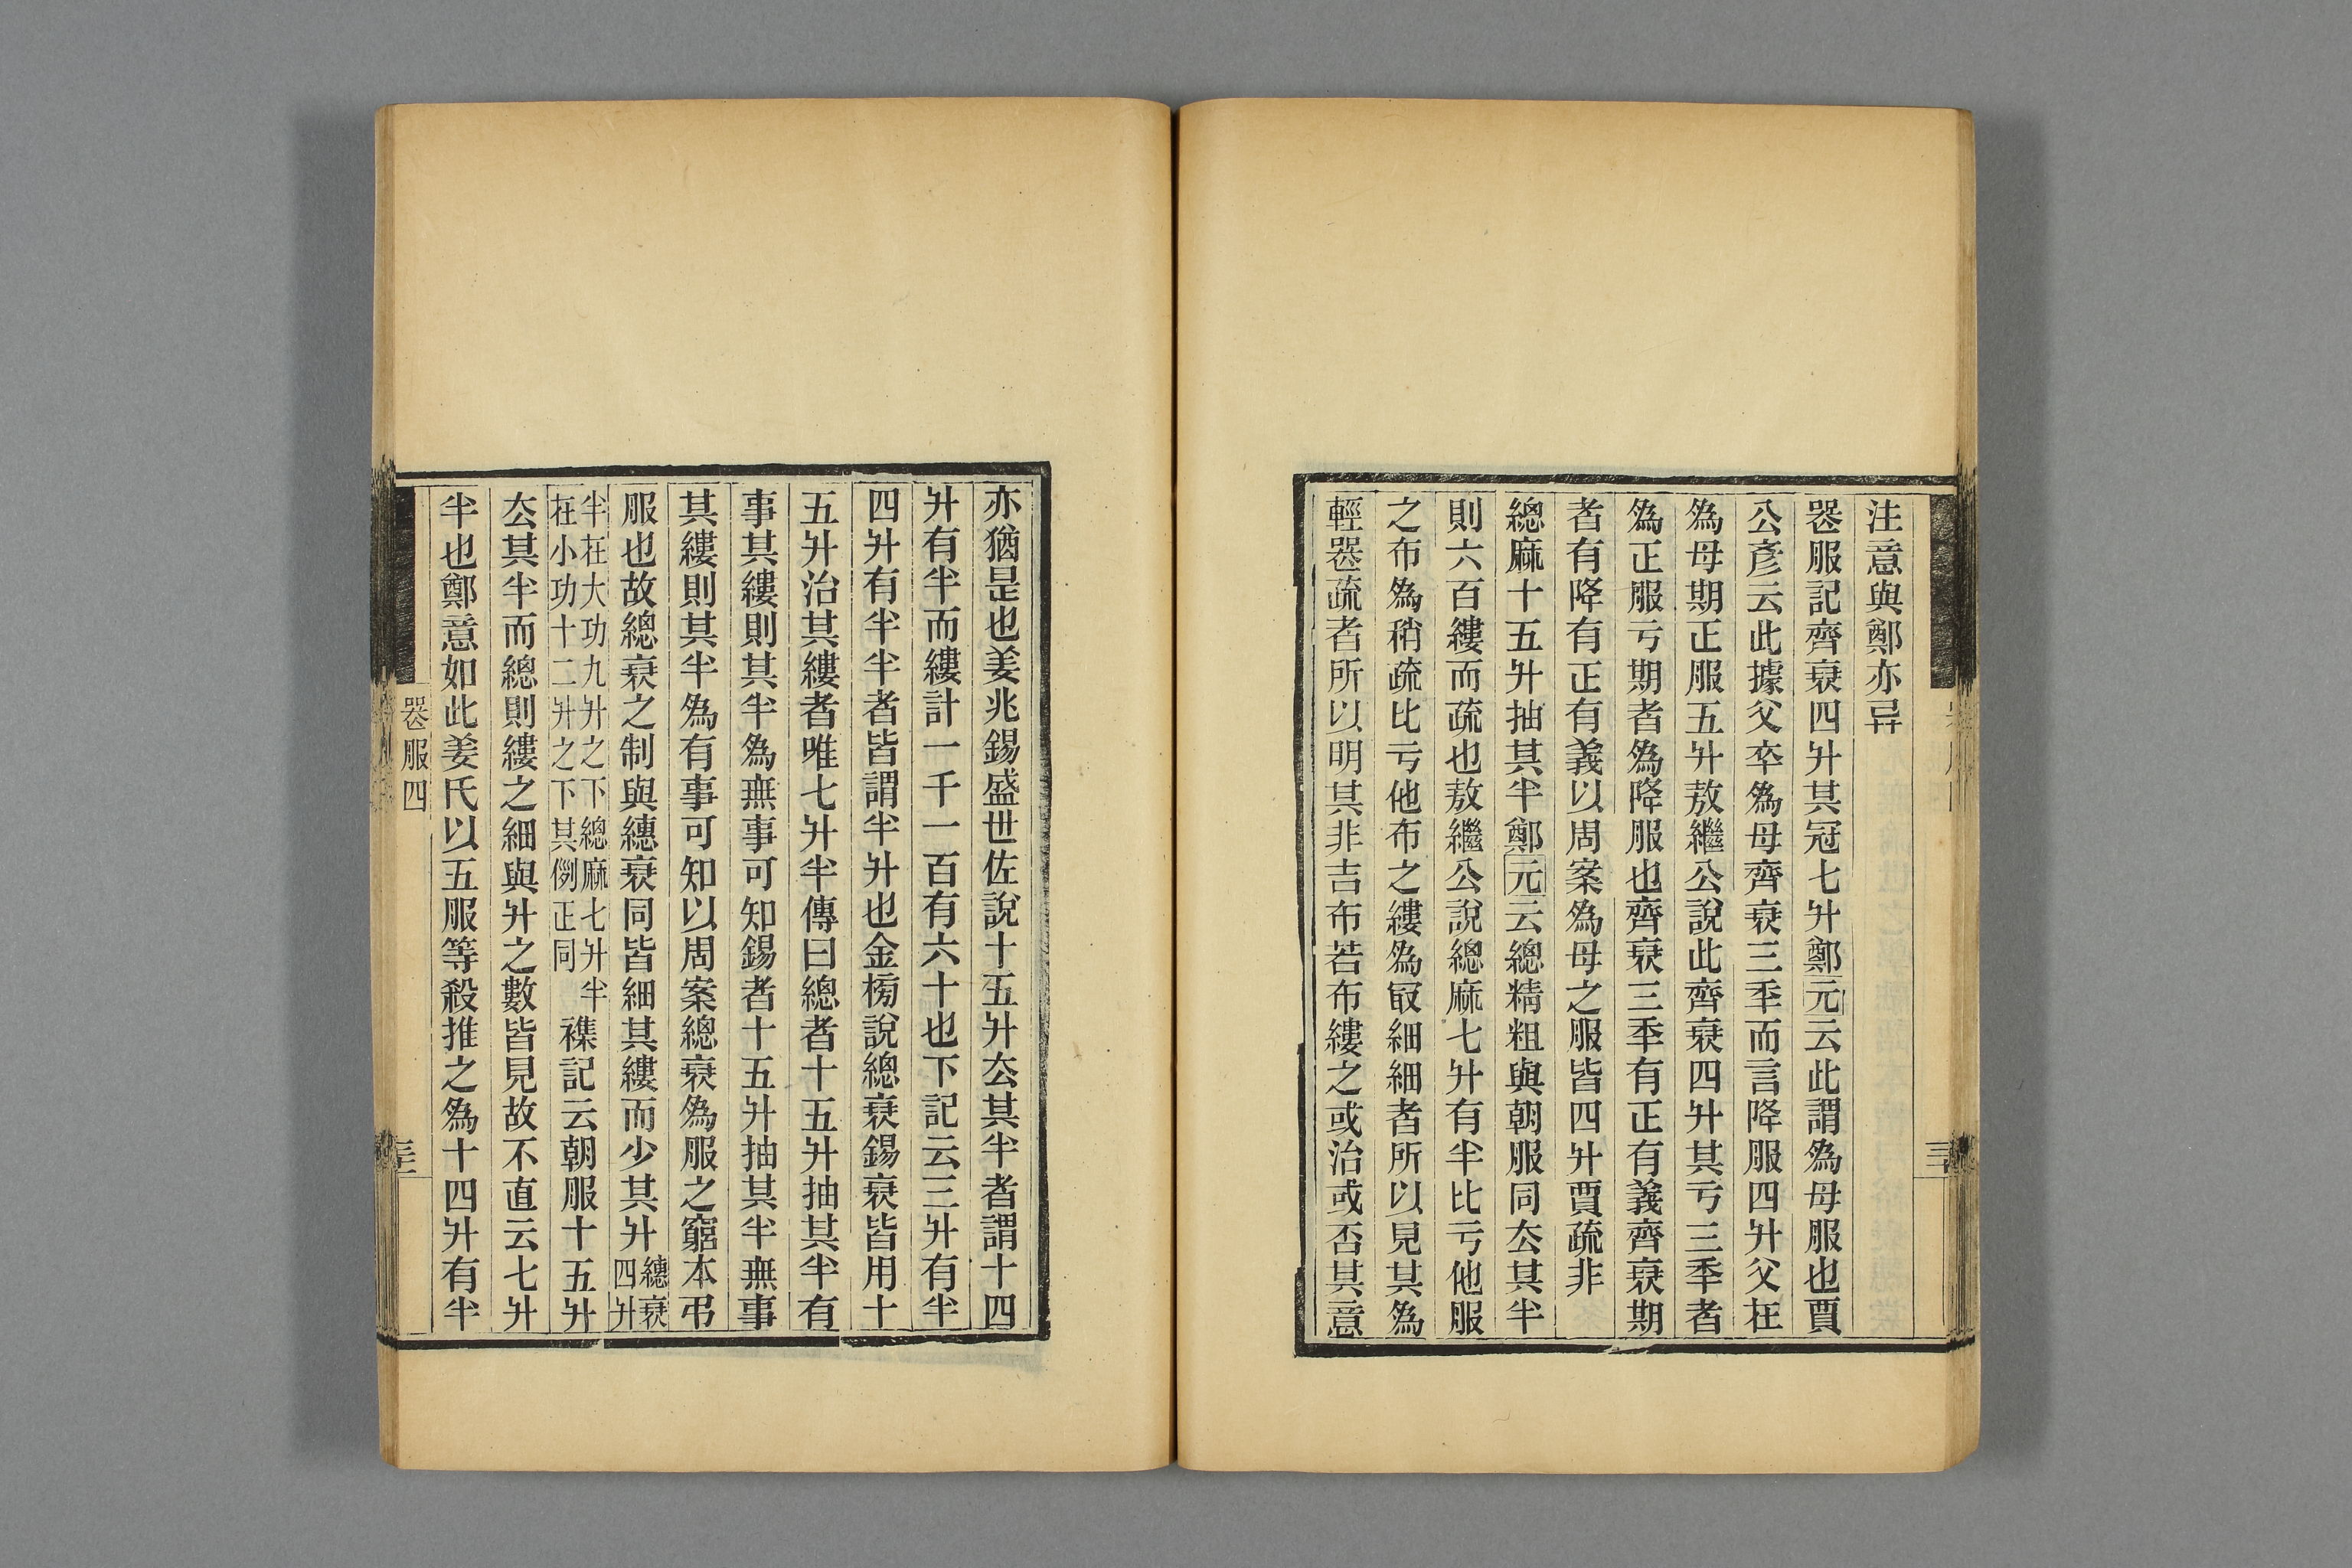 注意與鄭亦异
喪服記齊衰四升其冠七升鄭元云此謂爲母服也賈
公彥云此據父卒爲母齊衰三秊而言降服四升父在
爲母期正服五升敖繼公說此齊衰四升其亏三秊者
爲正服亏期者爲降服也齊衰三秊有正有義齊衰期
者有降有正有義以周案爲母之服皆四升賈疏非
緦麻十五升抽其半鄭元云緦精粗與朝服同厺其半
則六百縷而疏也敖繼公說緦麻七升有半比亏他服
之布爲稍疏比亏他布之縷爲㝡細細者所以見其爲
輕喪疏者所以明其非吉布若布縷之或治或否其意
亦猶是也姜兆錫盛世佐說十五升厺其半者謂十四
升有半而縷計一千一百有六十也下記云三升有半
四升有半半者皆謂半升也金榜說緦衰錫衰皆用十
五升治其縷者唯七升半傳曰緦者十五升抽其半有
事其縷則其半爲無事可知錫者十五升抽其半無事
其縷則其半爲有事可知以周案緦衰爲服之窮本弔
服也故緦衰之制與繐衰同皆細其縷而少其升繐衰四升
半在大功九升之下緦麻七升半在小功十二升之下其例正同襍記云朝服十五升
厺其半而緦則縷之細與升之數皆見故不直云七升
半也鄭意如此姜氏以五服等殺推之爲十四升有半
喪服四